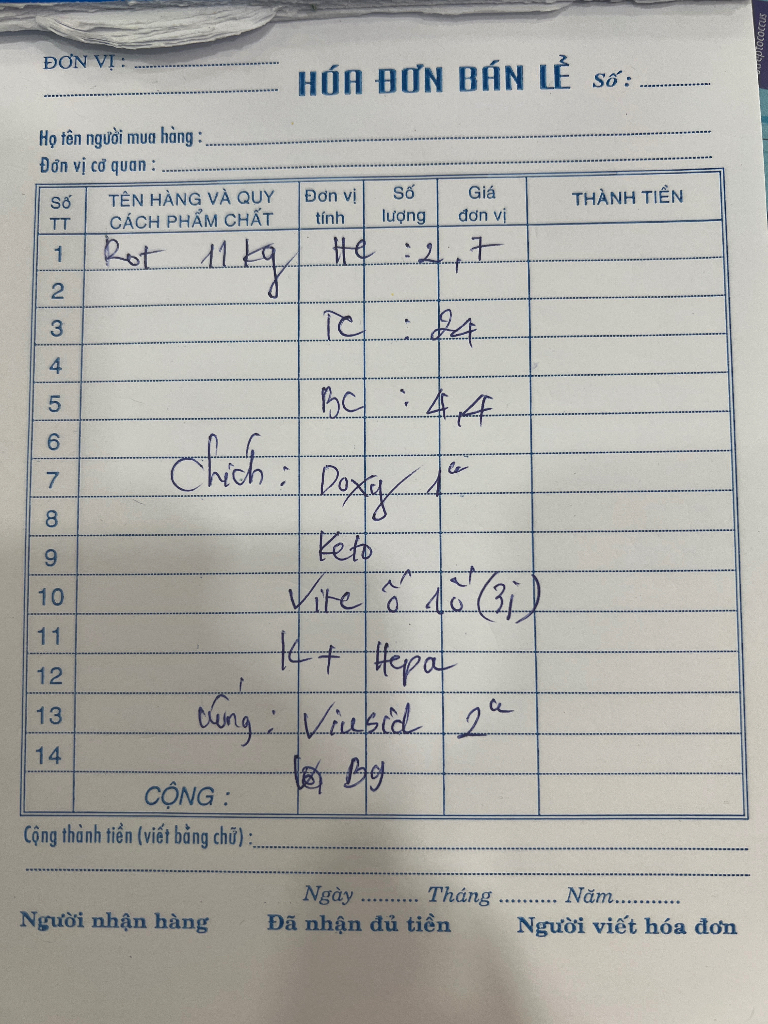 ĐƠN VỊ : ........................
HÓA ĐƠN BÁN LẺ Số : ............
Họ tên người mua hàng : ........................
Đơn vị cơ quan : ........................
Số TT TÊN HÀNG VÀ QUY CÁCH PHẨM CHẤT Đơn vị tính Số lượng Giá đơn vị THÀNH TIỀN
1 Rot 11 kg HC : 2,7
2
3 TC : 24
4
5 BC : 4,4
6
7 Chích : Doxy 1
8
9 Keto
10 Vite 1 ố (3j)
11
12 K + Hepa
13 uống : Viusid 2
14 Bg
CỘNG :
Cộng thành tiền (viết bằng chữ) : ........................
Ngày .......... Tháng .......... Năm...........
Người nhận hàng Đã nhận đủ tiền Người viết hóa đơn